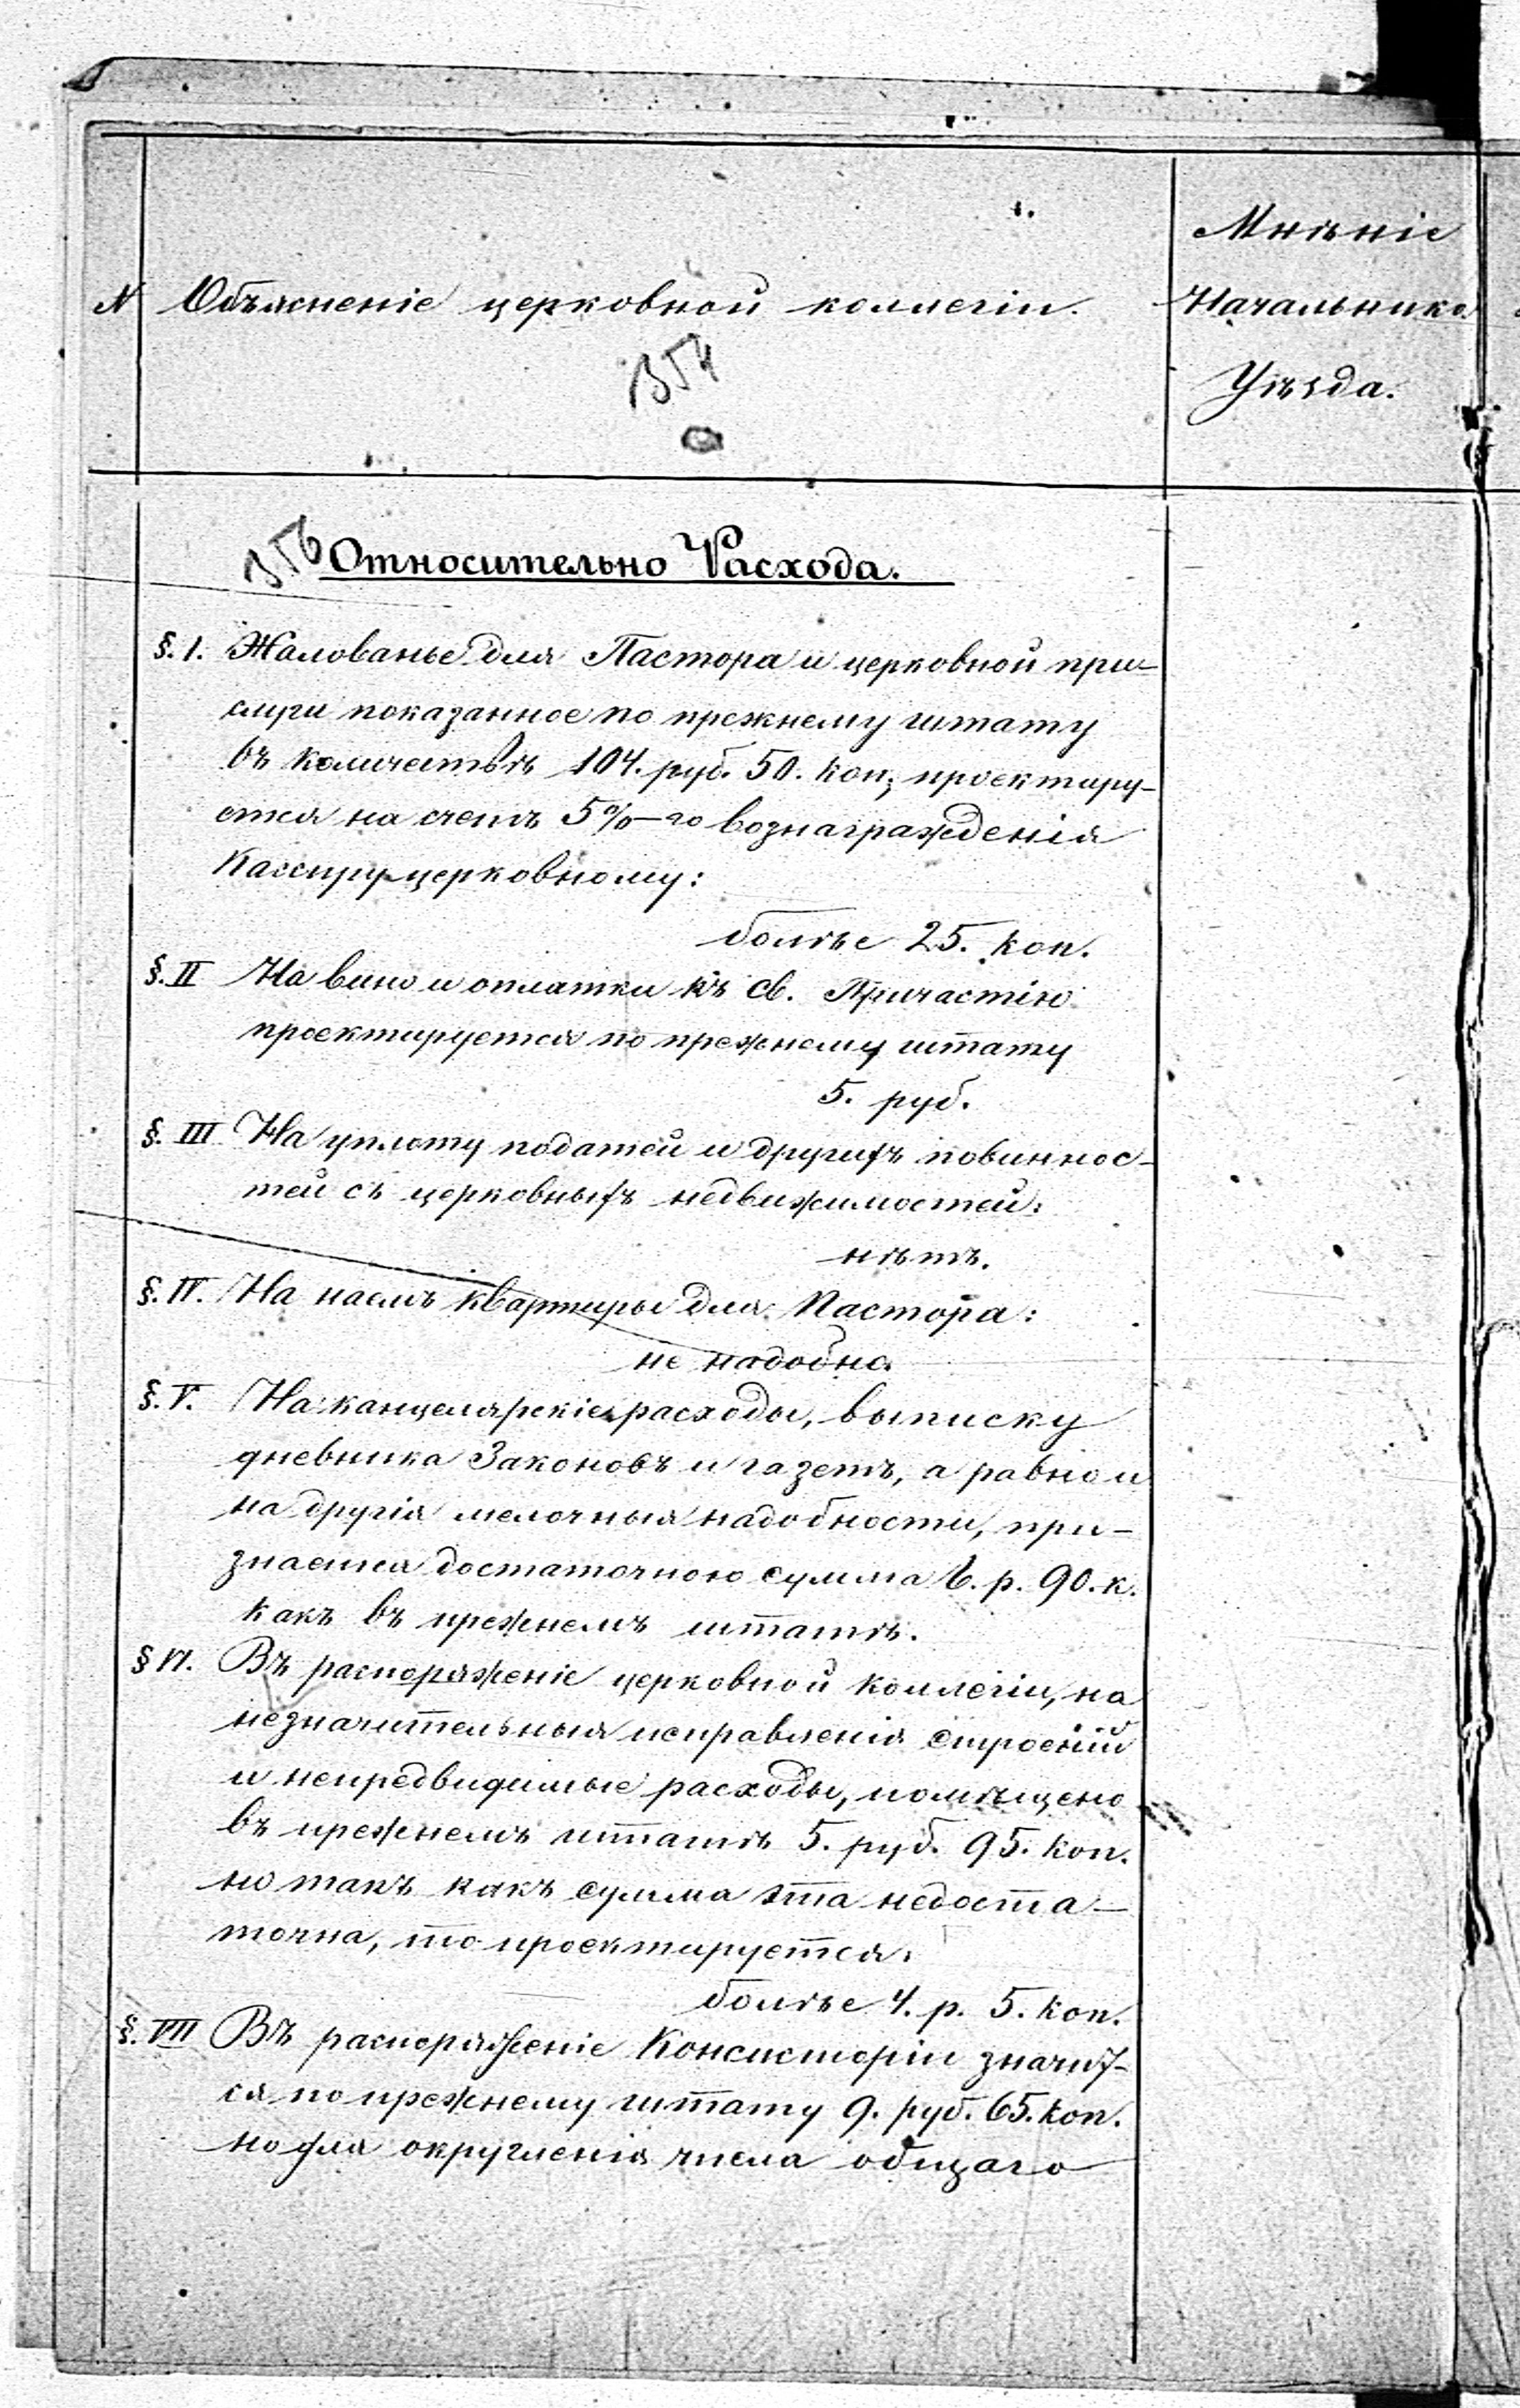 Мнѣніе
N Объясненіе церковной коллегіи. Начальника
Уѣзда.
354
356 Относительно Расхода.
§. I. Жалованье для Пастора и церковной при-
слуги показанное по прежнему штату
въ количествѣ 104. руб. 50. коп; проектиру-
ется на счетъ 5%-го вознагражденія
Кассиру церковному:
болѣе 25. коп.
§. II На вино и оплатки къ св. Причастію
проектируется по прежнему штату
5. руб.
§. III На уплату податей и другихъ повиннос-
тей съ церковныхъ недвижимостей:
нѣтъ.
§. IV. На наемъ квартиры для Пастора:
не надобно.
§. V. На канцелярскіе расходы, выписку
дневника Законовъ и газетъ, а равно и
на другія мелочныя надобности, при-
знается достаточною сумма 6. р. 90. к.
какъ въ прежнемъ штатѣ.
§ VI. Въ распоряженіе церковной коллегіи, на
незначительныя исправленія строеній
и непредвидимые расходы, помѣщено
въ прежнемъ штатѣ 5. руб. 95. коп.
но такъ какъ сумма эта недоста-
точна, то проектируется:
болѣе 4. р. 5. коп.
§. VII Въ распоряженіе Консисторіи значит-
ся по прежнему штату 9. руб. 65. коп.
но для округленія числа общаго